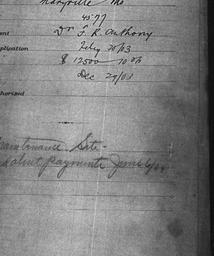 Maryville Mo
4577
ent Dr F. R. Anthony
plication Feby 28/03
$12500 10
Dec 29/03
thorized
Maintenance Site -
about payments June 6/04